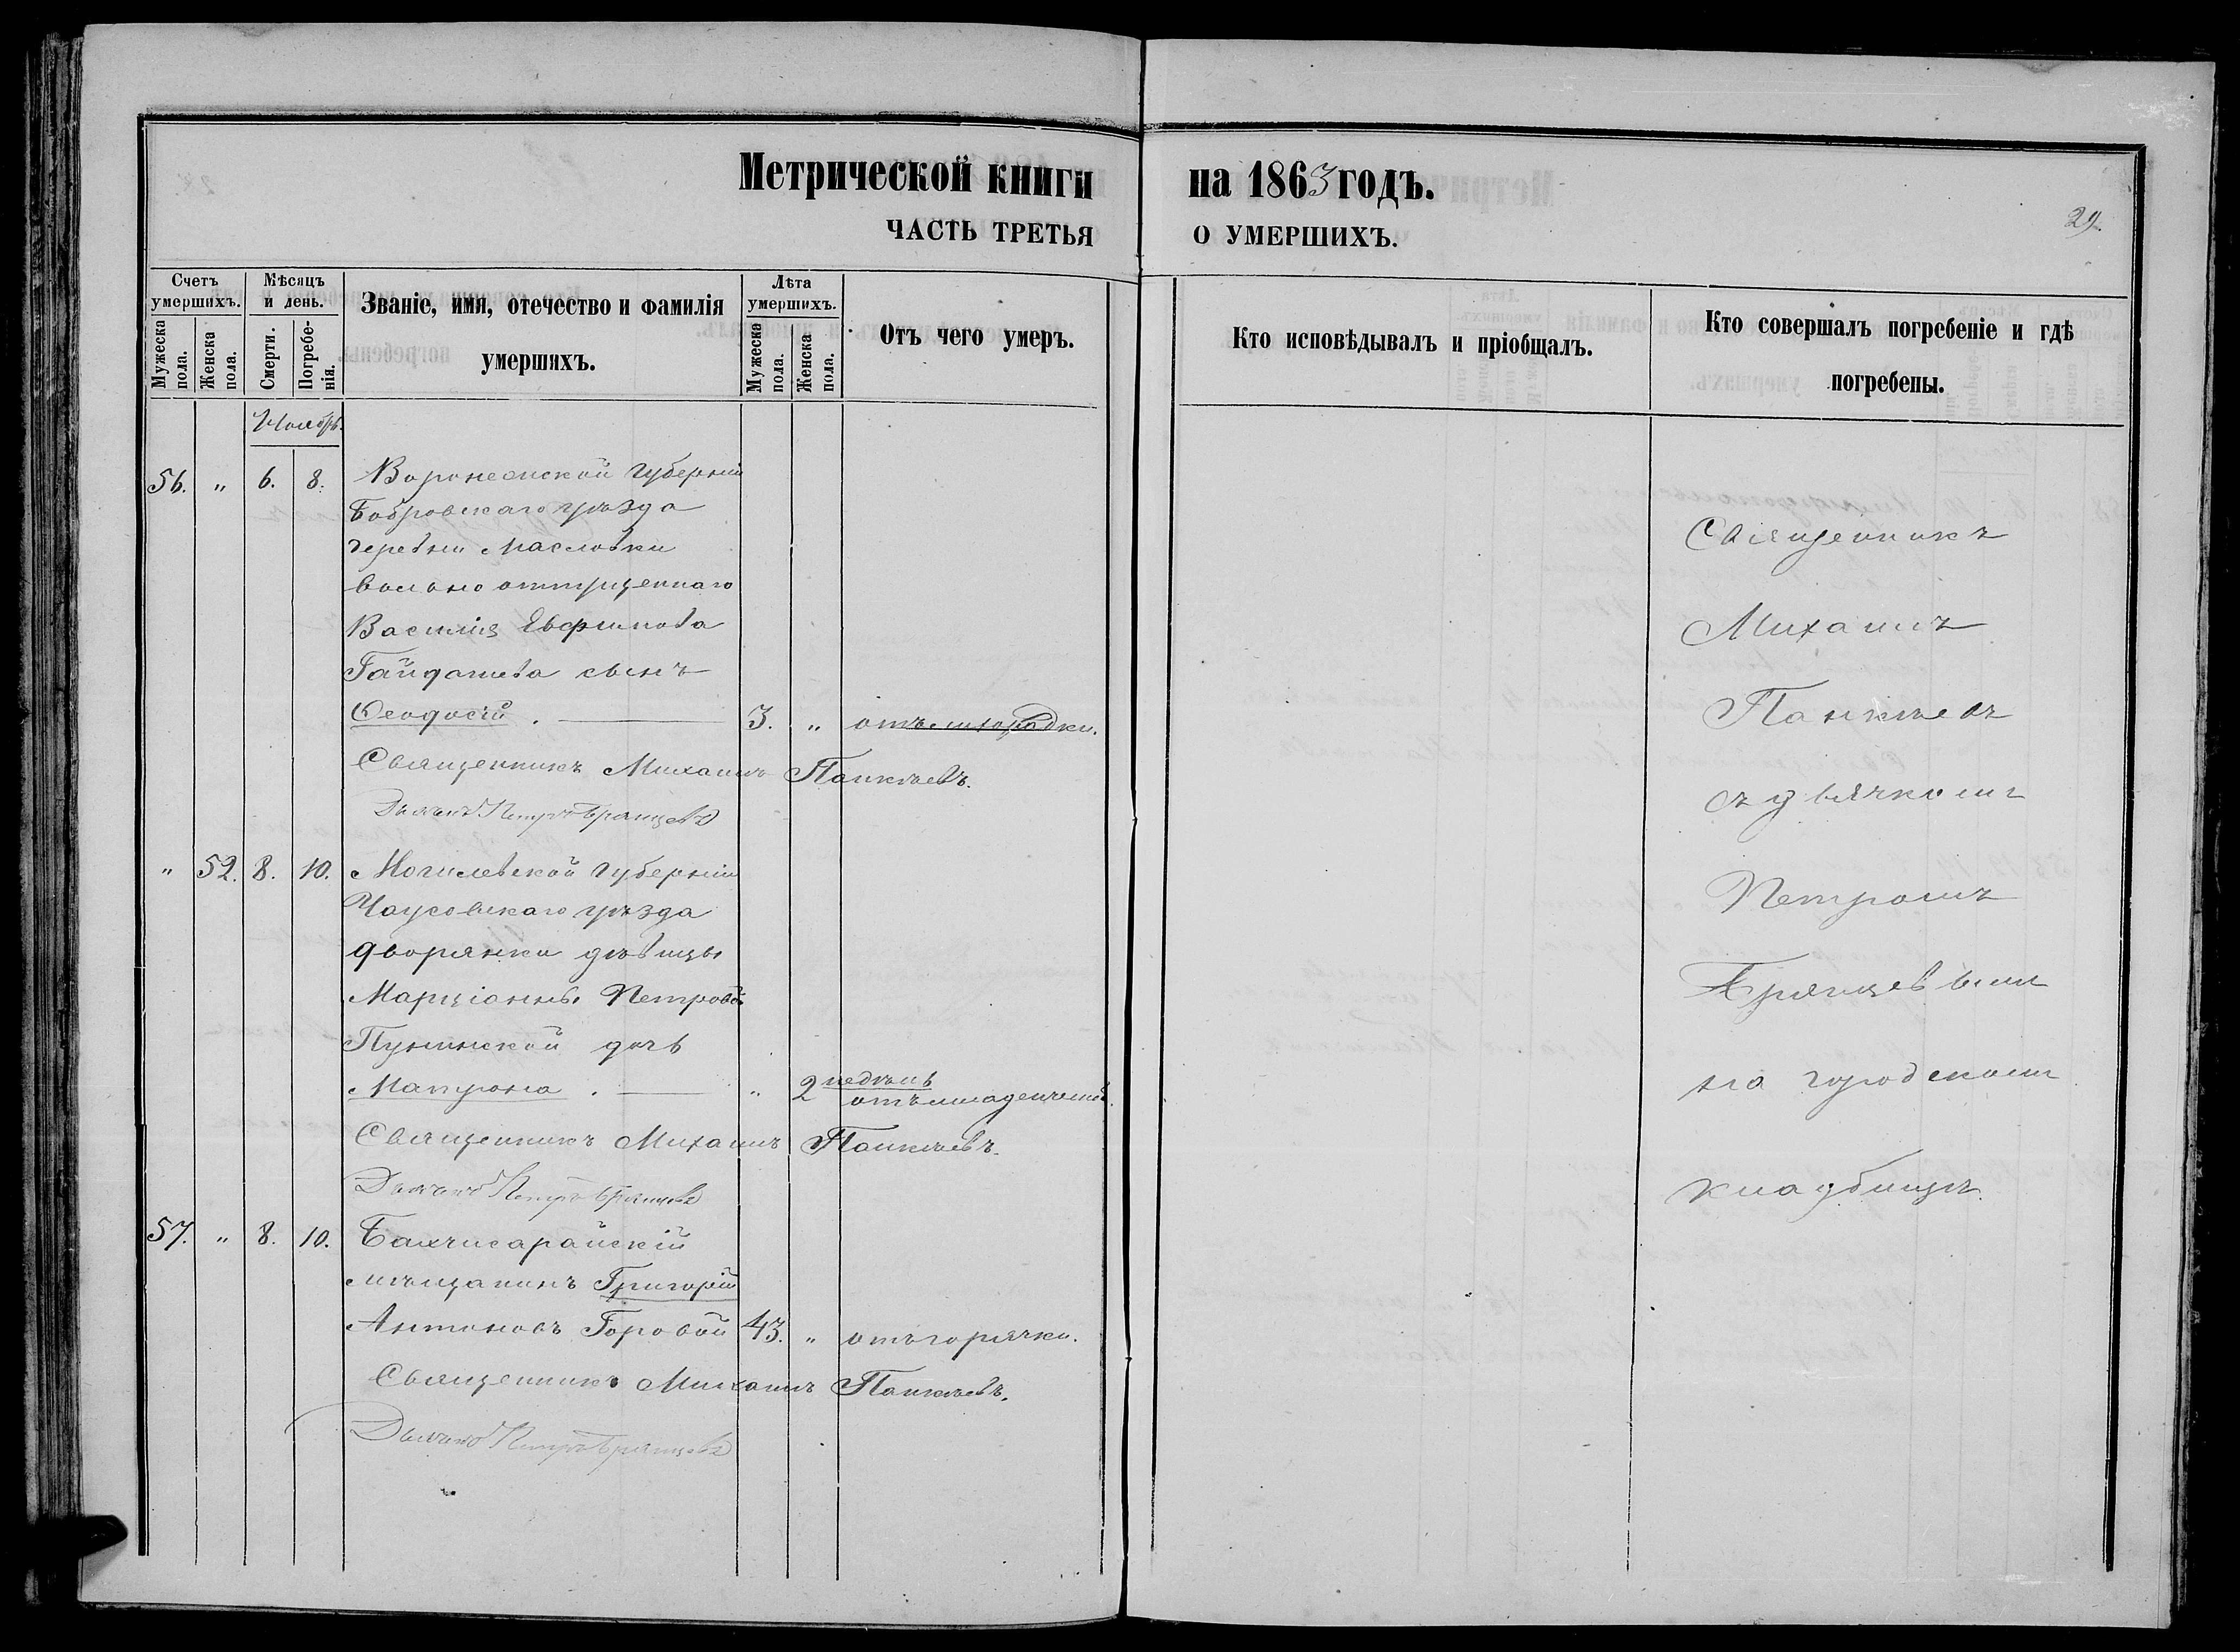 Метрической книги на 1863 годъ.
ЧАСТЬ ТРЕТЬЯ О УМЕРШИХЪ.
29.
Счетъ умершихъ.
Мужеска пола.
Женска пола.
Мѣсяцъ и день.
Смерти.
Погребенія.
Званіе, имя, отечество и фамилія
умершихъ.
Лѣта умершихъ.
Мужеска пола.
Женска пола.
Отъ чего умеръ.
Кто исповѣдывалъ и пріобщалъ.
Кто совершалъ погребеніе и гдѣ
погребены.
Ноябрь.
56. „ 6. 8. Воронежской губерніи
Бобровскаго уѣзда
деревни Масловки
вольно отпущеннаго
Василія Евфимова
сынъ
Ѳеодосій. 3. „
Священникъ Михаилъ Панкѣевъ.
Дьячекъ Петръ Брянцевъ
„ 52. 8. 10. Могилевской губерніи
Чаусовскаго уѣзда
дворянки дѣвицы
Марціанны Петровой
дочь
Матрона. „ 2 недѣль
отъ младенческой.
Священникъ Михаилъ Панкѣевъ.
Дьячекъ Петръ Брянцевъ
57. „ 8. 10. Бахчисарайскій
мѣщанинъ Григорій
Антоновъ Горовой 43. „ отъ горячки.
Священникъ Михаилъ Панкѣевъ.
Дьячекъ Петръ Брянцевъ
Священникъ
Михаилъ
Панкѣевъ
съ дьячкомъ
Петромъ
Брянцевымъ
на городскомъ
кладбищѣ.